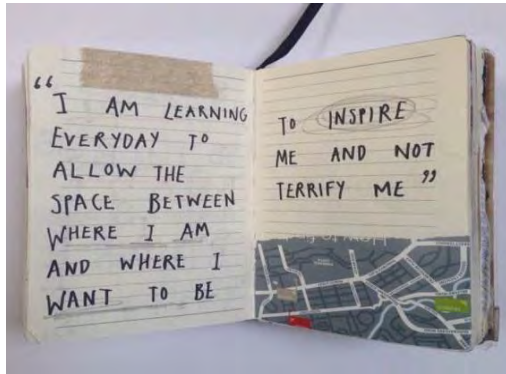 “I AM LEARNING
EVERYDAY TO
ALLOW THE
SPACE BETWEEN
WHERE I AM
AND WHERE I
WANT TO BE
TO INSPIRE
ME AND NOT
TERRIFY ME”